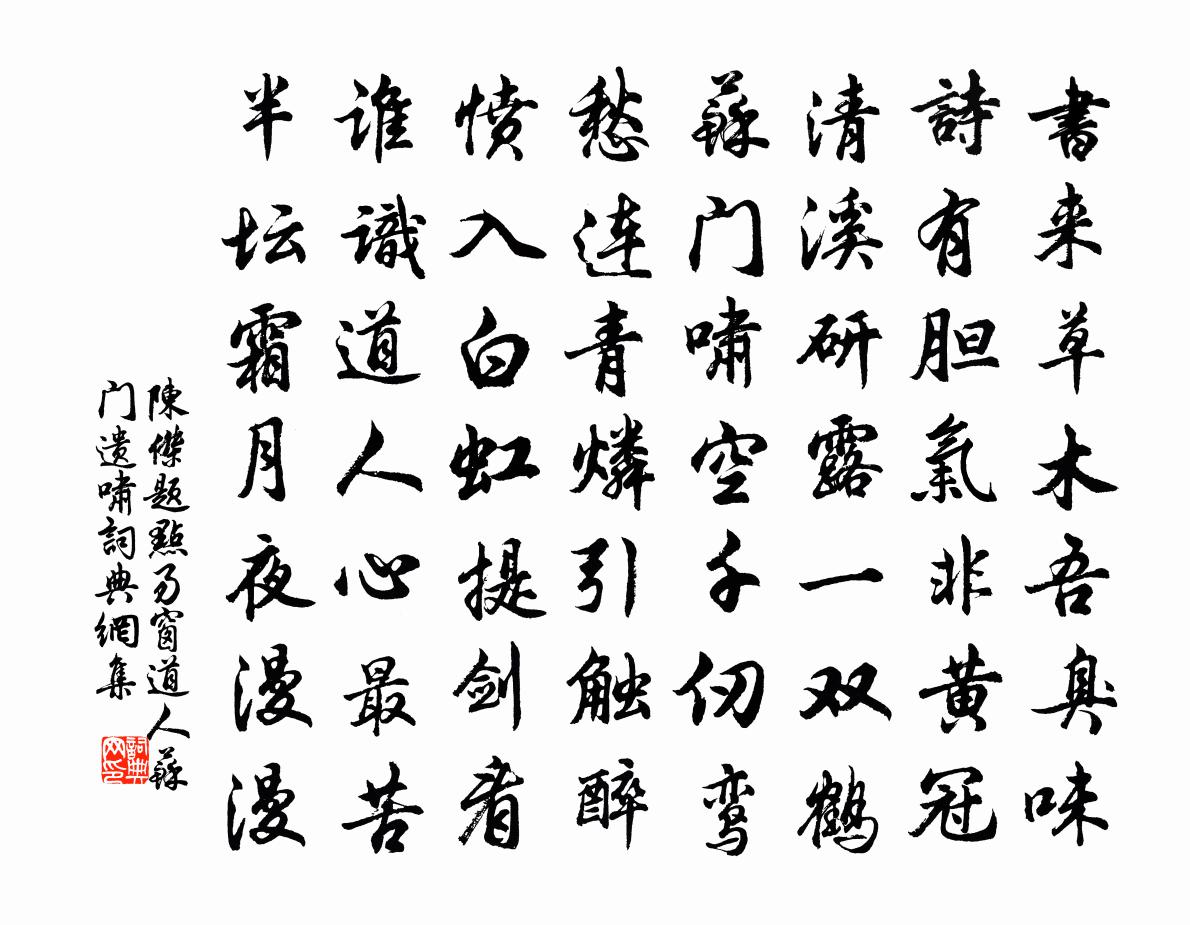 書来草木吾臭味
詩有胆氣非黃冠
清溪研露一双鶴
蘇门嘯空千仞鸾
愁连青燐引触醉
愤入白虹提剑看
谁識道人心最苦
半坛霜月夜漫漫
陳傑题點易窗道人蘇
门遗嘯詞典網集
詞典
网印